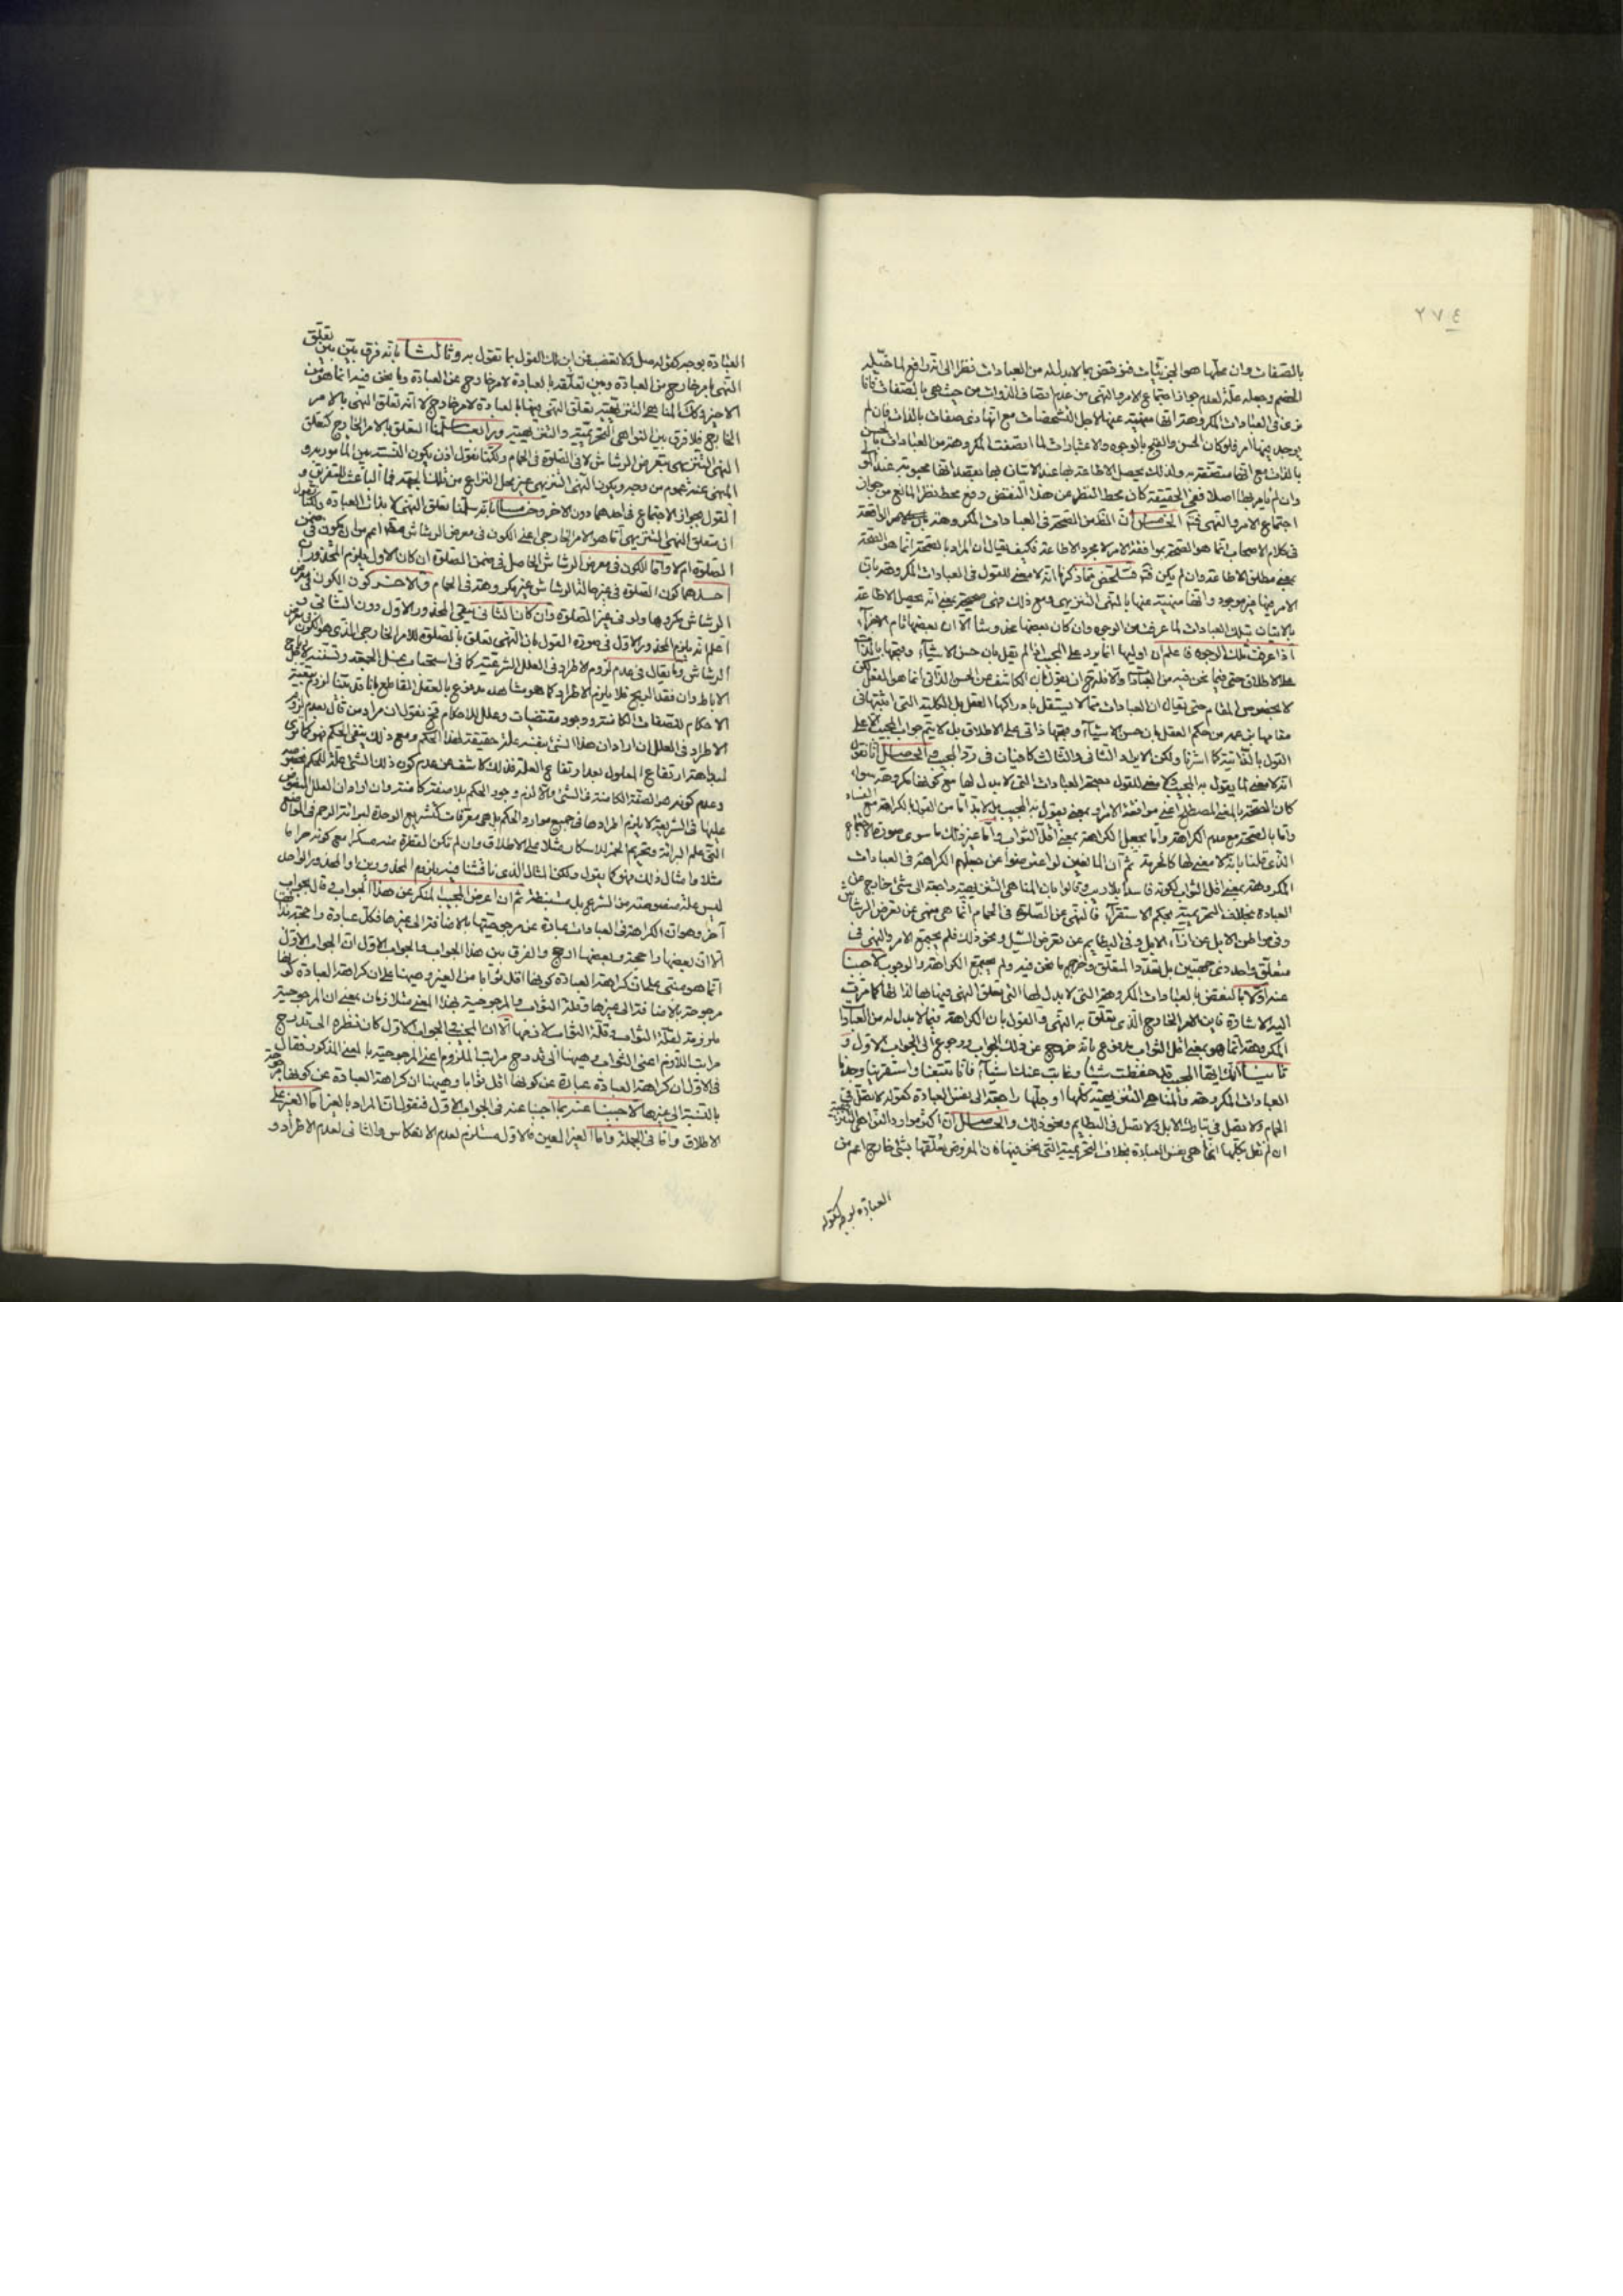 ٢٧٤
بالصفات وان محلها هو الجزئيات فنوقض بما لا بدل له من العبادات نظرا الى انه رافع لما
الخصم وجعله علة لعدم جواز اجتماع الامر والنهى من عدم اتصاف الذوات من حيث هى بالصفات فانا
نرى فى العبادات المكروهة انها منهية عنها لاجل التشخصات مع انها ذى صفات بالذات فان لم
يوجد فيها امر فلو كان الحسن والقبح بالوجوه والاعتبارات لما اتصفت المكروهة من العبادات بالحسن
بالذات مع انها متصفة به ولذلك يحصل الاطاعة بها عند الاتيان بها بقصد انها محبوبة عند
وان لم يأمر بها اصلا ففى الحقيقة كان محط النظر من هذا النقض دفع محط نظر المانع من جواز
اجتماع الامر والنهى الحاصل ان القدر من الصحة فى العبادات المكروهة الواقعة
فى كلام الاصحاب انما هو الصحة بموافقة الامر لا مجرد الاطاعة فكيف يقال ان المراد بالصحة انما هو الصحة
بمعنى مطلق الاطاعة وان لم يكن فتلخص مما ذكرنا انه لا معنى للقول فى العبادات المكروهة بان
الامر فيها غير موجود وانها منهية عنها بالنهى التنزيهى ومع ذلك فهى صحيحة بمعنى انه يحصل الاطاعة
بالاتيان بتلك العبادات لما عرفت من الوجوه وان كان بعضها مخدوشا الا ان بعضها تام الاجزاء
اذا عرفت تلك الوجوه فاعلم ان اوليها انما يرد على المجيب اذا لم يقل بان حسن الاشياء وقبحها بالذات
على الاطلاق حتى فيما نحن فيه من العبادات والا فله ان يقول بان الكاشف عن الحسن الذاتى انما هو العقل
لا بخصوص المقام حتى يقال ان العبادات مما لا يستقل بادراكها العقل بل الكلية التى اثبتها فى
مقامها من حكم العقل بان حسن الاشياء وقبحها ذاتى على الاطلاق بل لا يتم جواب المجيب الا على
القول بالذاتية كما اشرنا ولكن الايراد الثانى والثالث كافيان فى رد المجيب والحاصل انا نقول
انه لا معنى لما يقول به المجيب ولا معنى للقول بصحة العبادات التى لا بدل لها مع كونها مكروهة سواء
كان الصحة بالمعنى المصطلح اعنى موافقة الامر او بمعنى يقول به المجيب بل لا بد اما من القول بالكراهة مع الفساد
واما بالصحة مع عدم الكراهة واما بجعل الكراهة بمعنى اقل الثواب واما غير ذلك ما سوى صورة الاجتماع
الذى قلنا بانه لا معنى لها كالحرمة ثم ان المانعين لو اعترضوا عن جعلهم الكراهة فى العبادات
المكروهة بمعنى اقل الثواب لكونه فاسدا بلا ريب وقالوا بان المناهى التنزيهية راجعة الى شىء خارج عن
العبادة بخلاف التحريمية بحكم الاستقراء فالنهى عن الصلوة فى الحمام انما هى منهى عن تعرض الرشاش
وفى مواطن الابل عن اذاء الابل وفى البطايح عن تعرض السيل ونحو ذلك فلم يجتمع الامر والنهى فى
متعلق واحد ذى جهتين بل تعدد المتعلق وخرج ما نحن فيه ولم يجتمع الكراهة والوجوب لاجبنا
عنه اولا بالنقض بالعبادات المكروهة التى لا بدل لها التى تعلق النهى فيها بها لذاتها كما مرت
اليه الاشارة فاين الامر الخارج الذى يتعلق به النهى والقول بان الكراهة فيما لا بدل له من العبادات
المكروهة انما هو بمعنى اقل الثواب مدفوع بانه خرج عن ذلك الجواب ورجوع الى الجواب الاول و
ثانيا انك ايها المجيب قد حفظت شيئا وغابت عنك اشياء فانا تتبعنا واستقرينا وجدنا
العبادات المكروهة والمناهى التنزيهية كلها او جلها راجعة الى نفس العبادة كقوله لا تصل فى
الحمام ولا تصل فى مبارك الابل ولا تصل فى البطايح ونحو ذلك والحاصل ان اكثر موارد النواهى التنزيهية
ان لم نقل بكلها انما هى بنفس العبادة بخلاف التحريمية التى نحن فيها فان المفروض تعلقها بشىء خارج اعم من
العبادة بوجه كقوله
العبادة بوجه كقوله صل ولا تغصب فمن اين لك القول بما تقول به وثالثا بانه فرق بين بين تعلق
النهى بامر خارج من العبادة وبين تعلقه بالعبادة لامر خارج عن العبادة وما نحن فيه انما هو من
الاخير وكذا المناهى التنزيهية تعلق النهى فيها بالعبادة لامر خارج لا انه تعلق النهى بالامر
الخارج فلا فرق بين النواهى التحريمية والتنزيهية ورابعا سلمنا التعلق بالامر الخارج كتعلق
النهى التنزيهى بتعرض الرشاش لا فى الصلوة فى الحمام ولكنا نقول اذن يكون النسبة بين المأمور به و
المنهى عنه عموم من وجه ويكون النهى التنزيهى عين محل النزاع من تلك الجهة فما الباعث للتفريق و
القول بجواز الاجتماع فى احدهما دون الاخر وخامسا بانه سلمنا تعلق النهى لا بذات العبادة ولكنا نقول
ان متعلق النهى التنزيهى اما هو الامر الخارجى اعنى الكون فى معرض الرشاش اعم من ان يكون فى ضمن
الصلوة ام لا واما الكون فى معرض الرشاش الحاصل فى ضمن الصلوة ان كان الاول فيلزم المحذوران
احدهما كون الصلوة فى غير هذا الرشاش غير مكروهة فى الحمام والاخر كون الكون فى معرض
الرشاش مكروها ولو فى غير الصلوة وان كان الثانى يبقى المحذور الاول دون الثانى و
اعلم انه يلزم المحذور الاول فى صورة القول بان النهى تعلق بالصلوة للامر الخارجى الذى هو الكون فى معرض
الرشاش وما يقال فى عدم لزوم الاطراد فى العلل الشرعية كما فى استحباب غسل الجمعة وتسننه لاجل
الاباط وان فقد الريح فلا يلزم الاطراد كما هو مشاهد مدفوع بالعقل القاطع بانا قد بينا لزوم تبعية
الاحكام للصفات الكامنة ووجود مقتضيات وعلل للاحكام فح نقول ان مراد من قال بعدم لزوم
الاطراد فى العلل ان اراد ان هذا الشىء بنفسه علة حقيقة لهذا الحكم ومع ذلك ينفى الحكم فهو كما ترى
لبداهة ارتفاع المعلول بعد ارتفاع العلة فذلك كاشف عن عدم كون ذلك الشىء علة للحكم بخصوصه
وعدم كونه هو الصفة الكامنة فى الشىء والا لزم وجود الحكم بلا صفة كامنة وان اراد ان العلل المنصوص
عليها فى الشريعة لا يلزم اطرادها فى جميع موارد الحكم بل هى معرفات كتشريع العدة لبرائة الرحم فى المواضع
التى علم البرائة وتحريم الخمر للاسكار مثلا على الاطلاق وان لم تكن القطرة منه مسكرا مع كونه حراما
مثلا وامثال ذلك فهو كما يقول ولكن المثال الذى ناقشنا فيه بلزوم المحذورين او المحذور الواحد
ليس علة منصوصة من الشرع بل مستنبطة ثم ان اعرض المجيب المنكر عن هذا الجواب وقال بجواب
آخر وهو ان الكراهة فى العبادات عبارة عن مرجوحيتها بالاضافة الى غيرها فكل عبادة راجحة بذاتها
الا ان بعضها راجحة وبعضها ارجح والفرق بين هذا الجواب والجواب الاول ان الجواب الاول
انما هو مبنى على ان كراهة العبادة كونها اقل ثوابا من الغير وهيهنا على ان كراهة العبادة كونها
مرجوحة بالاضافة الى غيرها وقلة الثواب والمرجوحية بهذا المعنى متلازمان بمعنى ان المرجوحية
ملزومة لقلة الثواب وقلة الثواب لازمها الا ان المجيب فى الجواب الاول كان نظره الى تدرج
مراتب اللازم اعنى الثواب وهيهنا الى تدرج مراتب الملزوم اعنى المرجوحية بالمعنى المذكور فقال
فى الاول ان كراهة العبادة عبارة عن كونها اقل ثوابا وهيهنا ان كراهة العبادة عن كونها مرجوحة
بالنسبة الى غيرها لاجبنا عنه بما اجبنا عنه فى الجواب الاول فنقول ان المراد بالغير اما الغير على
الاطلاق واما فى الجملة واما الغير المعين فالاول مستلزم لعدم الانعكاس والثانى لعدم الاطراد و